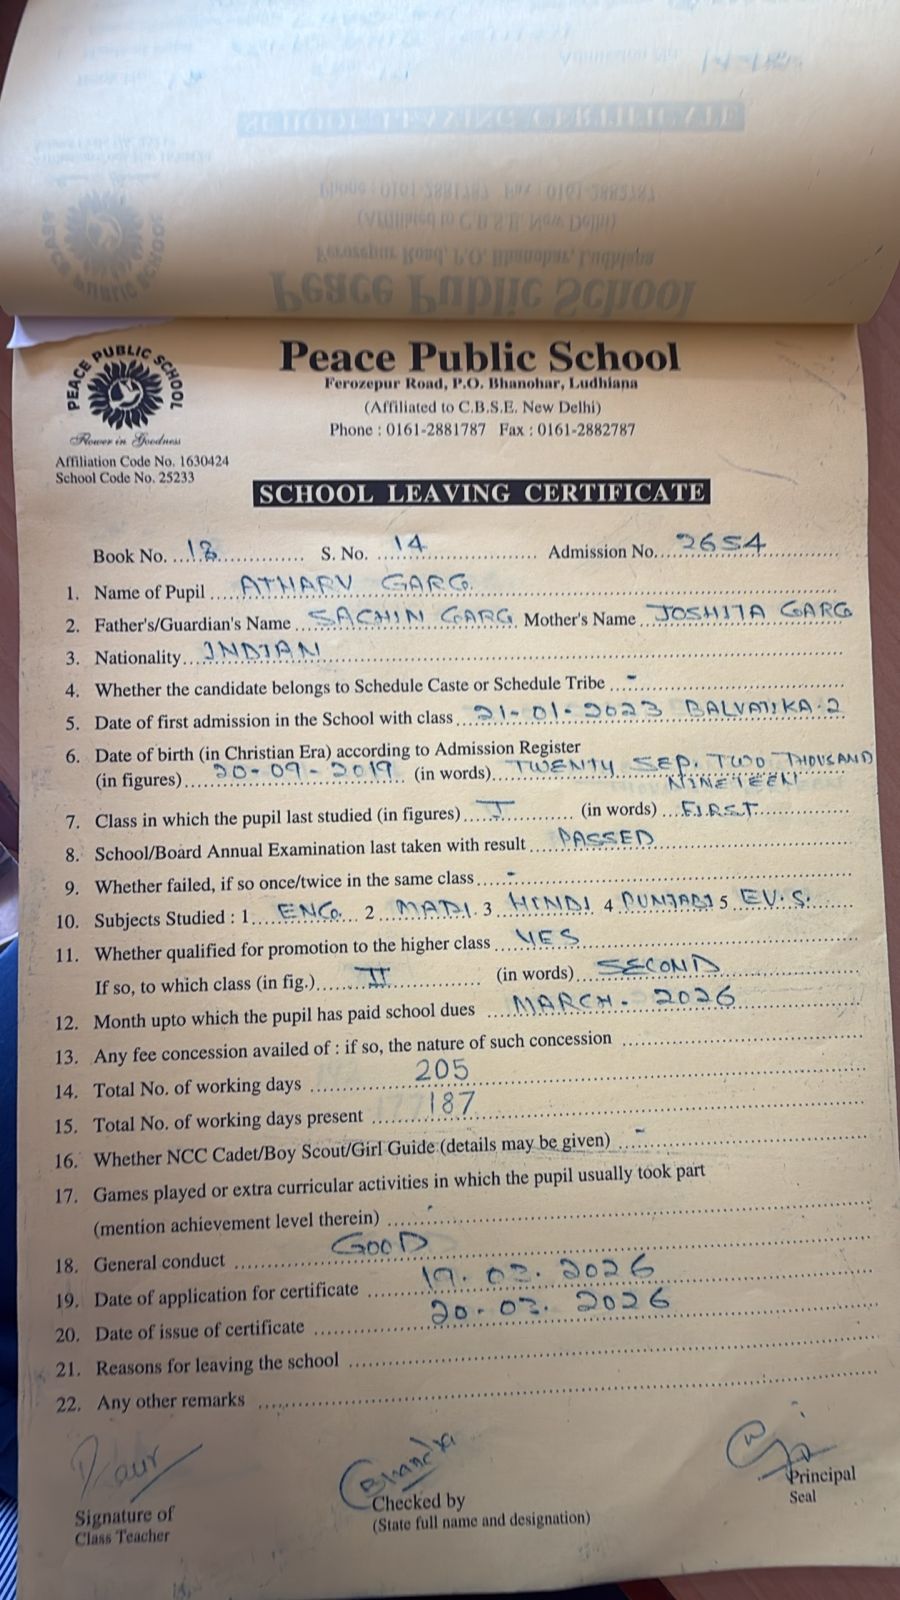 PEACE PUBLIC SCHOOL
Flower in Goodness
Affiliation Code No. 1630424
School Code No. 25233
Peace Public School
Ferozepur Road, P.O. Bhanohar, Ludhiana
(Affiliated to C.B.S.E. New Delhi)
Phone : 0161-2881787 Fax : 0161-2882787
SCHOOL LEAVING CERTIFICATE
Book No. 18 S. No. 14 Admission No. 2654
1. Name of Pupil ATHARV GARG
2. Father's/Guardian's Name SACHIN GARG Mother's Name JOSHITA GARG
3. Nationality INDIAN
4. Whether the candidate belongs to Schedule Caste or Schedule Tribe -
5. Date of first admission in the School with class 21-01-2023 BALVATIKA-2
6. Date of birth (in Christian Era) according to Admission Register
(in figures) 20-09-2019 (in words) TWENTY SEP. TWO THOUSAND
NINETEEN
7. Class in which the pupil last studied (in figures) I (in words) FIRST
8. School/Board Annual Examination last taken with result PASSED
9. Whether failed, if so once/twice in the same class -
10. Subjects Studied : 1 ENG. 2 3 HINDI 4 PUNJABI 5 EV.S.
11. Whether qualified for promotion to the higher class YES
If so, to which class (in fig.) II (in words) SECOND
12. Month upto which the pupil has paid school dues MARCH. 2026
13. Any fee concession availed of : if so, the nature of such concession
14. Total No. of working days 205
15. Total No. of working days present 187
16. Whether NCC Cadet/Boy Scout/Girl Guide (details may be given) -
17. Games played or extra curricular activities in which the pupil usually took part
(mention achievement level therein) -
18. General conduct GOOD
19. Date of application for certificate 19.03.2026
20. Date of issue of certificate 20-03.2026
21. Reasons for leaving the school
22. Any other remarks
Signature of
Class Teacher
Checked by
(State full name and designation)
Principal
Seal